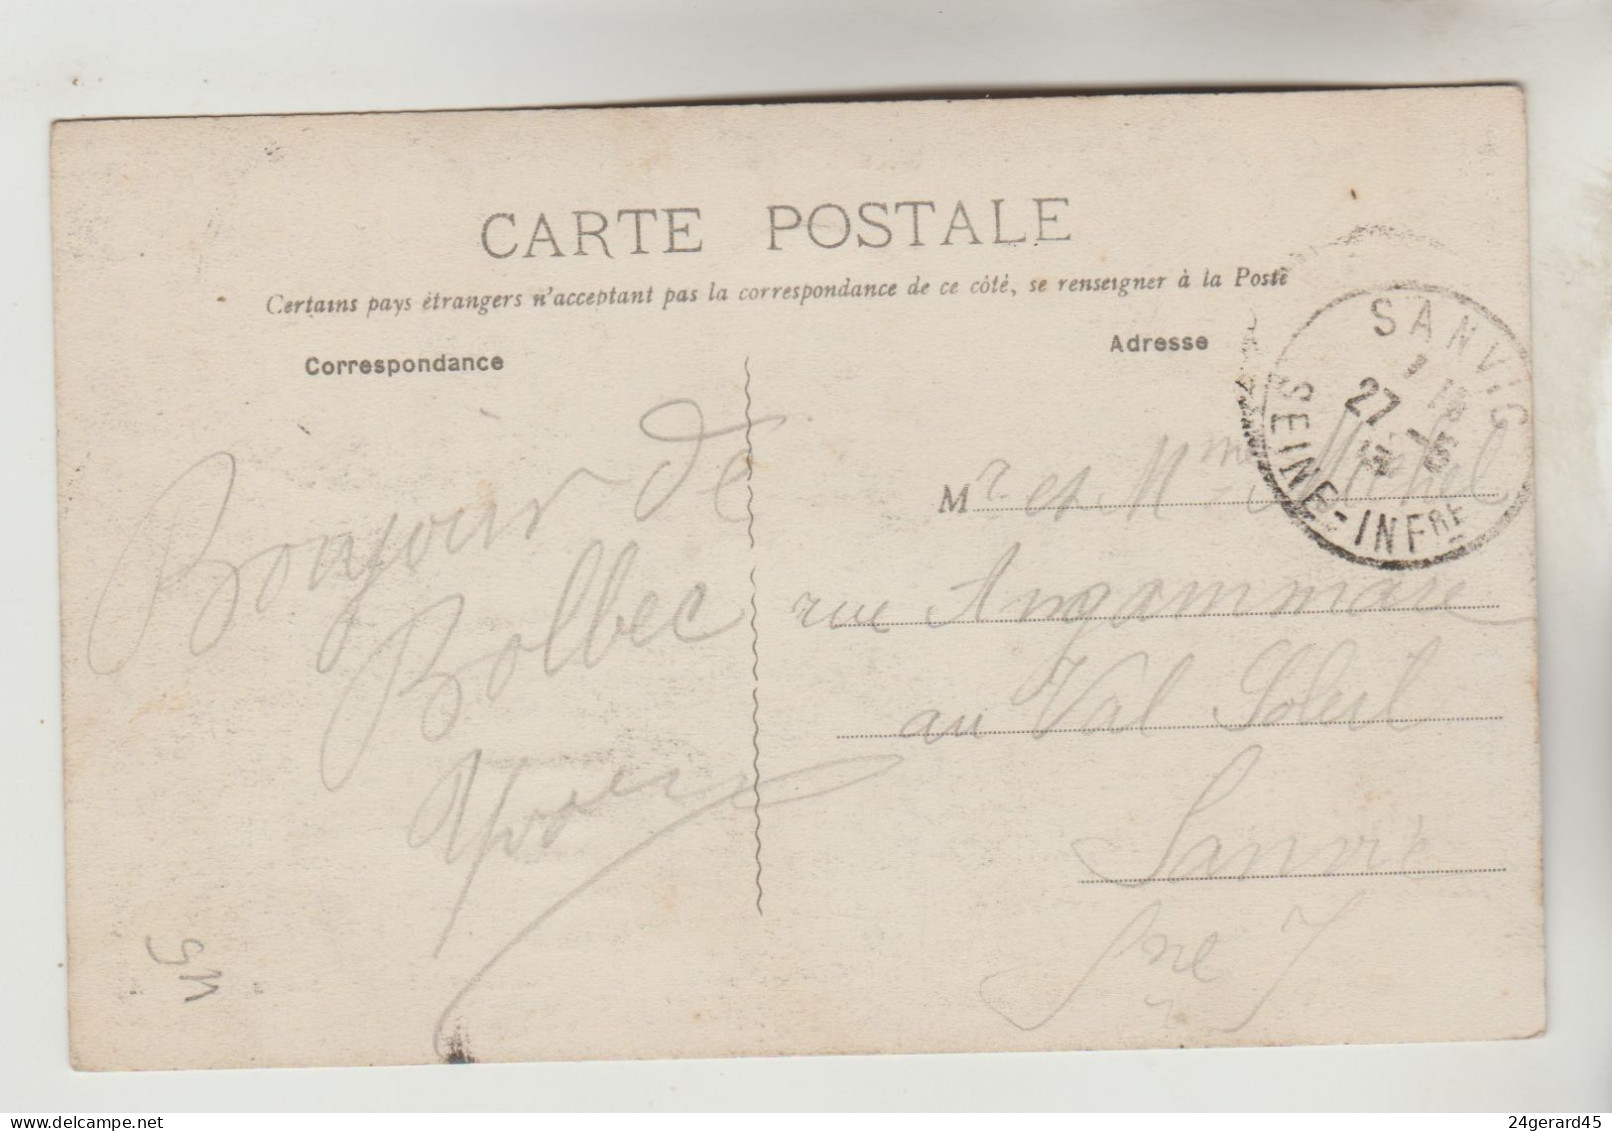 CARTE POSTALE
Certains pays étrangers n'acceptant pas la correspondance de ce côté, se renseigner à la Poste
Correspondance
Adresse
SANVIC
27
SEINE-INFRE
Bonjour de
Bolbec
Mr et Mme Michel
rue Angommare
au Val Soleil
Sanvic
Sne I
24gerard45